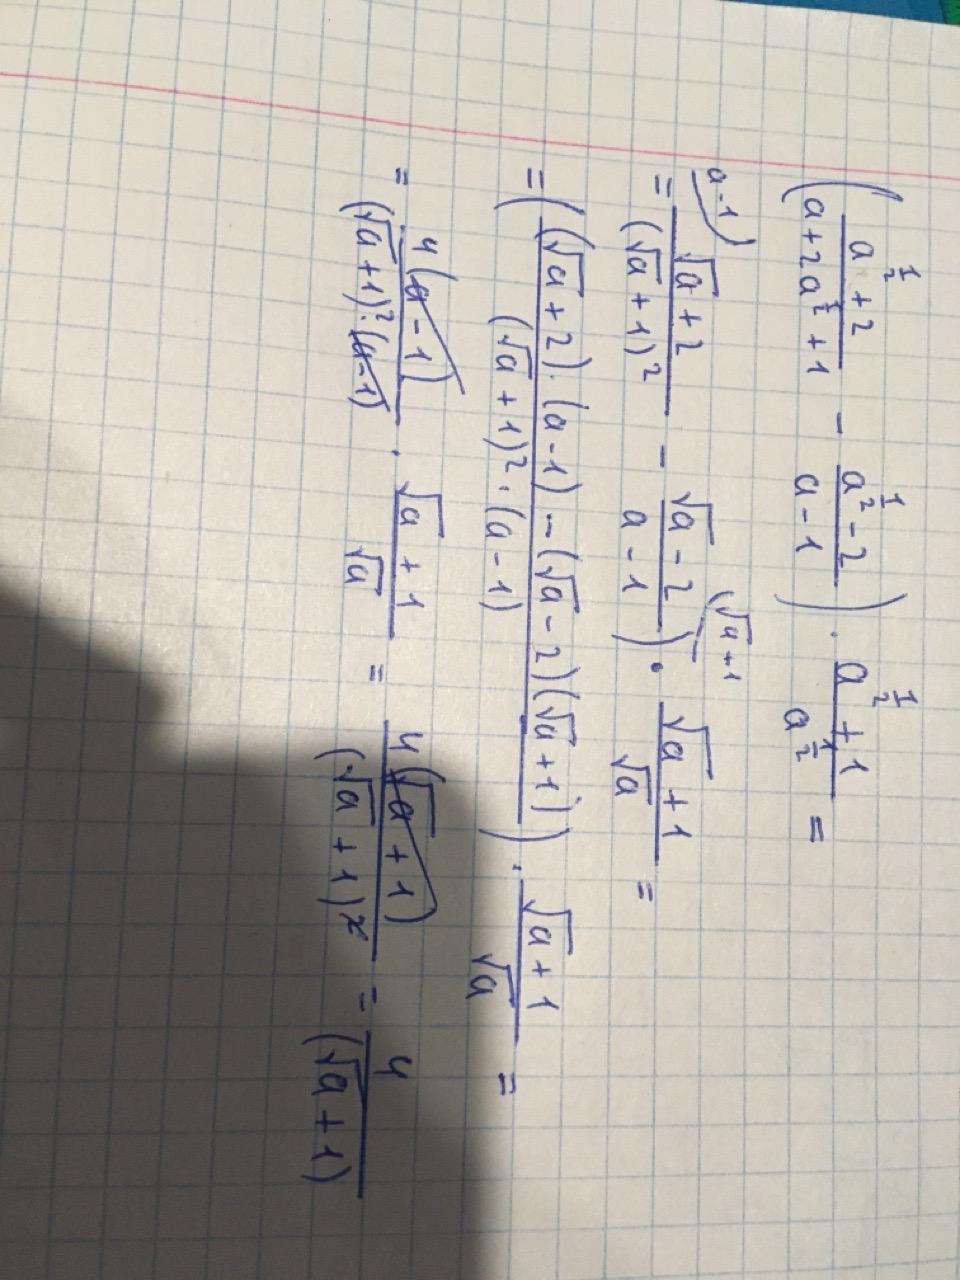 (a^{1/2} + 2 / a + 2a^{1/2} + 1 - a^{1/2} - 2 / a - 1) · a^{1/2} + 1 / a^{1/2} =
a-1) (√a+1
= √a + 2 / (√a + 1)² - √a - 2 / a - 1) · √a + 1 / √a =
= ((√a + 2) · (a - 1) - (√a - 2)(√a + 1) / (√a + 1)² · (a - 1)) · √a + 1 / √a =
= 4(a - 1) / (√a + 1)² · (a - 1) · √a + 1 / √a = 4(√a + 1) / (√a + 1)² - 4 / (√a + 1)